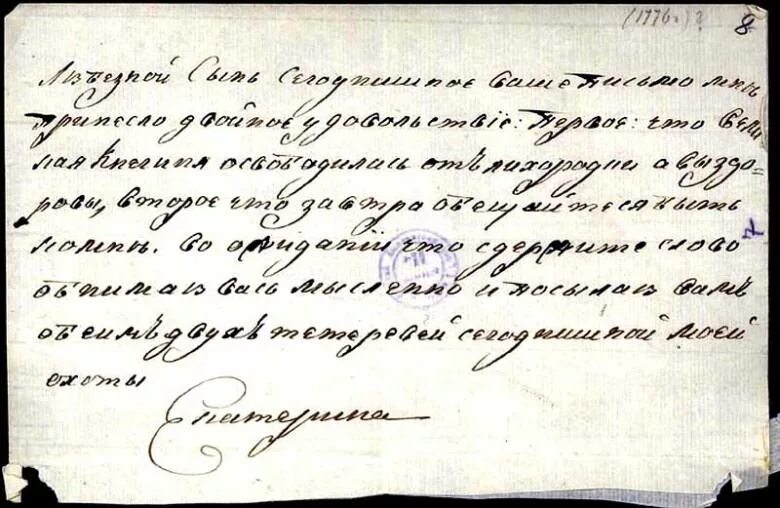 (1776г)?
8
Любезной Сынъ Сегоднишное Ваше письмо мнѣ
принесло двойное удовольствіе: Первое: что Вели
кая Княгиня освобадилась отъ лихорадки а вы здо=
ровы, второе что завтра обещайтеся быть
ко мнѣ. Во ожиданіи что сдержите слово
обнимаю васъ мысленно и посылаю вамъ
обеимъ двухъ тетеревей сегоднишной моей
охоты
Екатерина